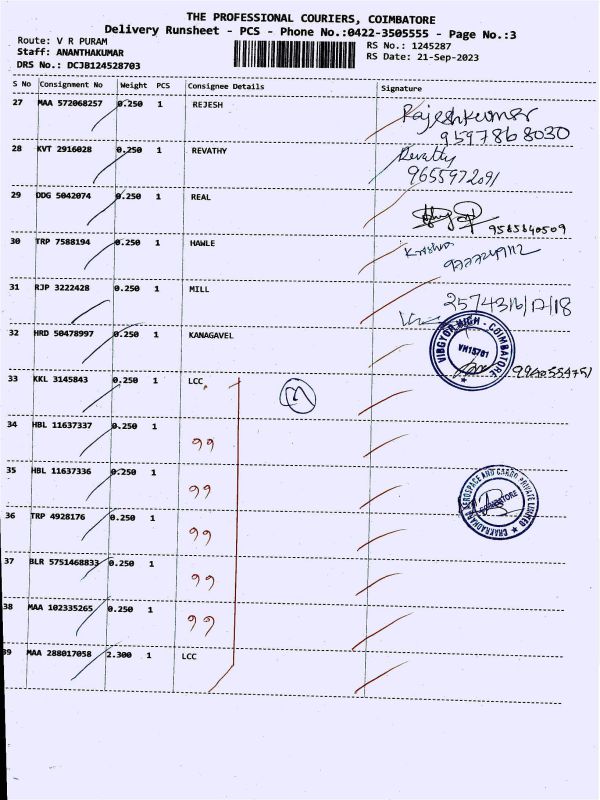 THE PROFESSIONAL COURIERS, COIMBATORE
Delivery Runsheet - PCS - Phone No.:0422-3505555 - Page No.:3
Route: V R PURAM
RS No.: 1245287
Staff: ANANTHAKUMAR
RS Date: 21-Sep-2023
DRS No.: DCJB124528703
S No Consignment No Weight PCS Consignee Details Signature
27 MAA 572068257 0.250 1 REJESH Rajeshkumar
9597868030
28 KVT 2916028 0.250 1 REVATHY Revathy
9655972091
29 DDG 5042074 0.250 1 REAL
9585840509
30 TRP 7588194 0.250 1 HAWLE Krishna
31 RJP 3222428 0.250 1 MILL 2574316/17/18
32 HRD 50478997 0.250 1 KANAGAVEL
VIBGYOR HIGH - COIMBATORE
33 KKL 3145843 0.250 1 LCC
34 HBL 11637337 0.250 1 99
35 HBL 11637336 0.250 1 99
CHAKRADHARA AEROSPACE AND CARGO PRIVATE LIMITED
COIMBATORE
36 TRP 4928176 0.250 1 99
37 BLR 5751468833 0.250 1 99
38 MAA 102335265 0.250 1 99
39 MAA 288017058 2.300 1 LCC